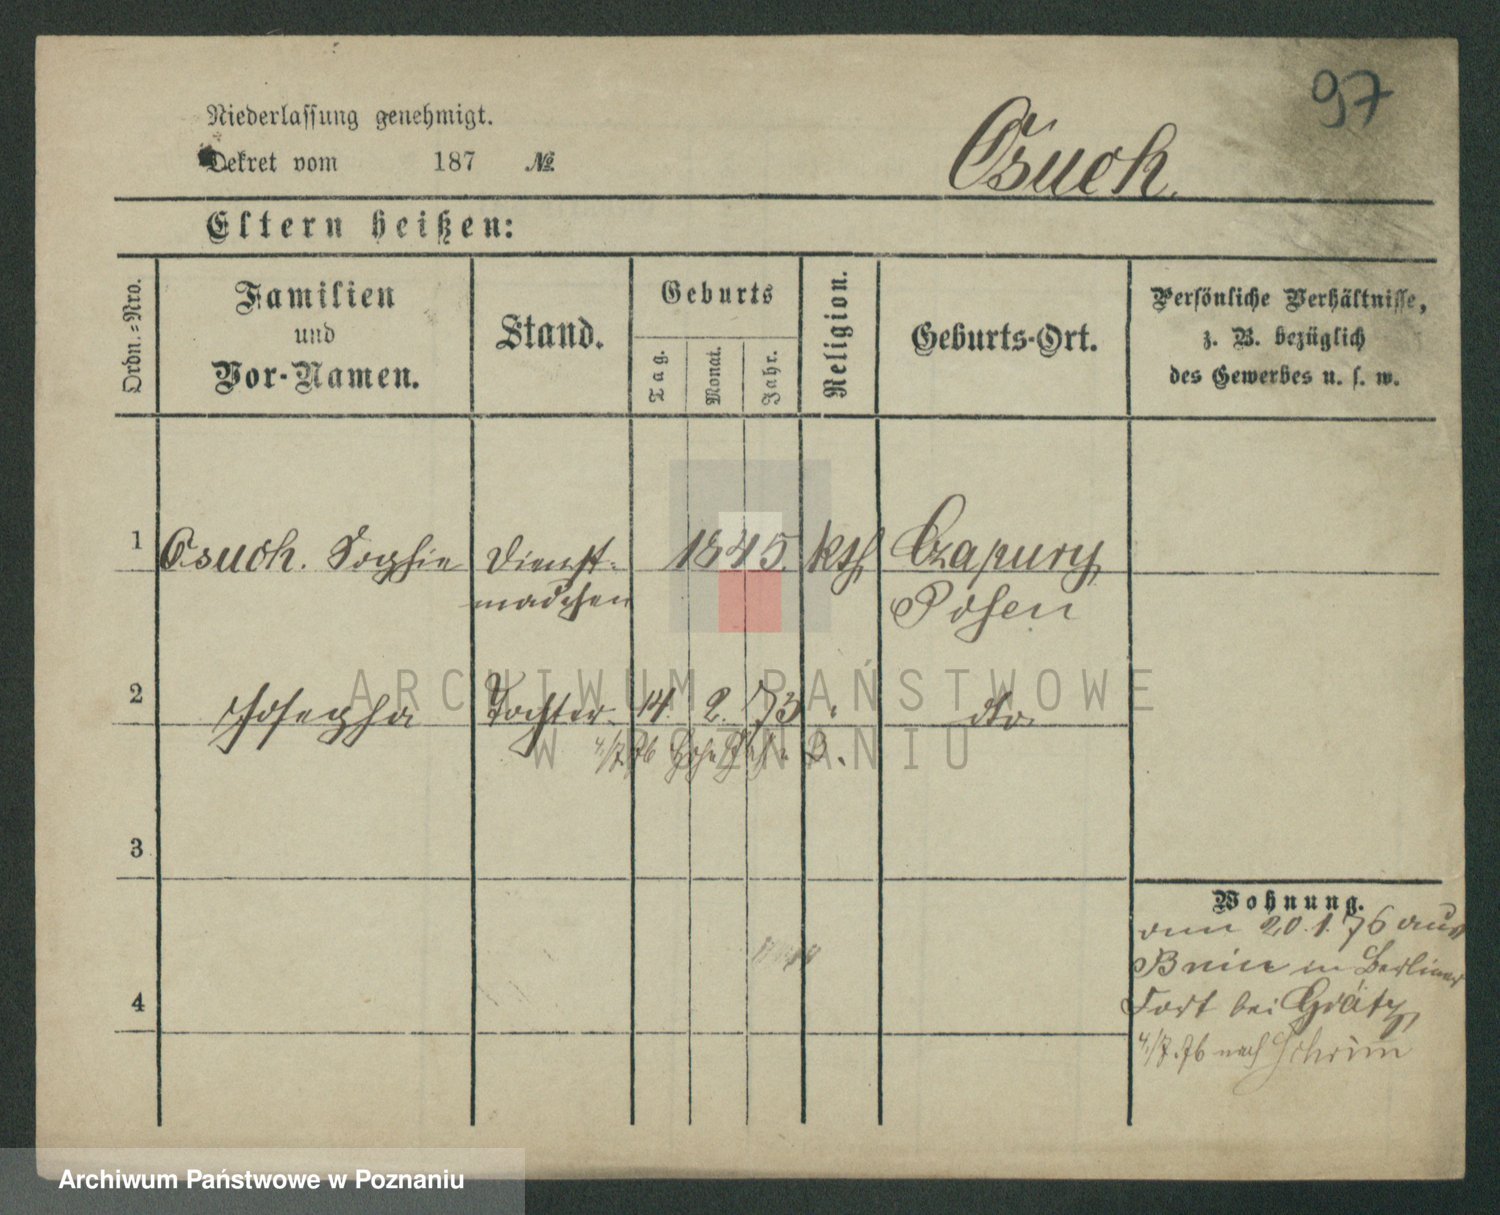 97
Niederlassung genehmigt.
Dekret vom 187 №.
Osuch.
Eltern heißen:
Ordn.-Nro.
Familien
und
Vor-Namen.
Stand.
Geburts
Tag.
Monat.
Jahr.
Religion.
Geburts-Ort.
Persönliche Verhältnisse,
z. B. bezüglich
des Gewerbes u. s. w.
1 Osuch. Sophie Dienst- 1845. kth Czapury
mädchen Posen
2 Josepha Tochter. 14. 2. 73 " dto.
4/7.76
3
4
Wohnung.
vom 20.1.76 aus
Bnin in Berliner
Fort bei Grätz
4/7.76 nach Schrim
ARCHIWUM PAŃSTWOWE
W POZNANIU
Archiwum Państwowe w Poznaniu